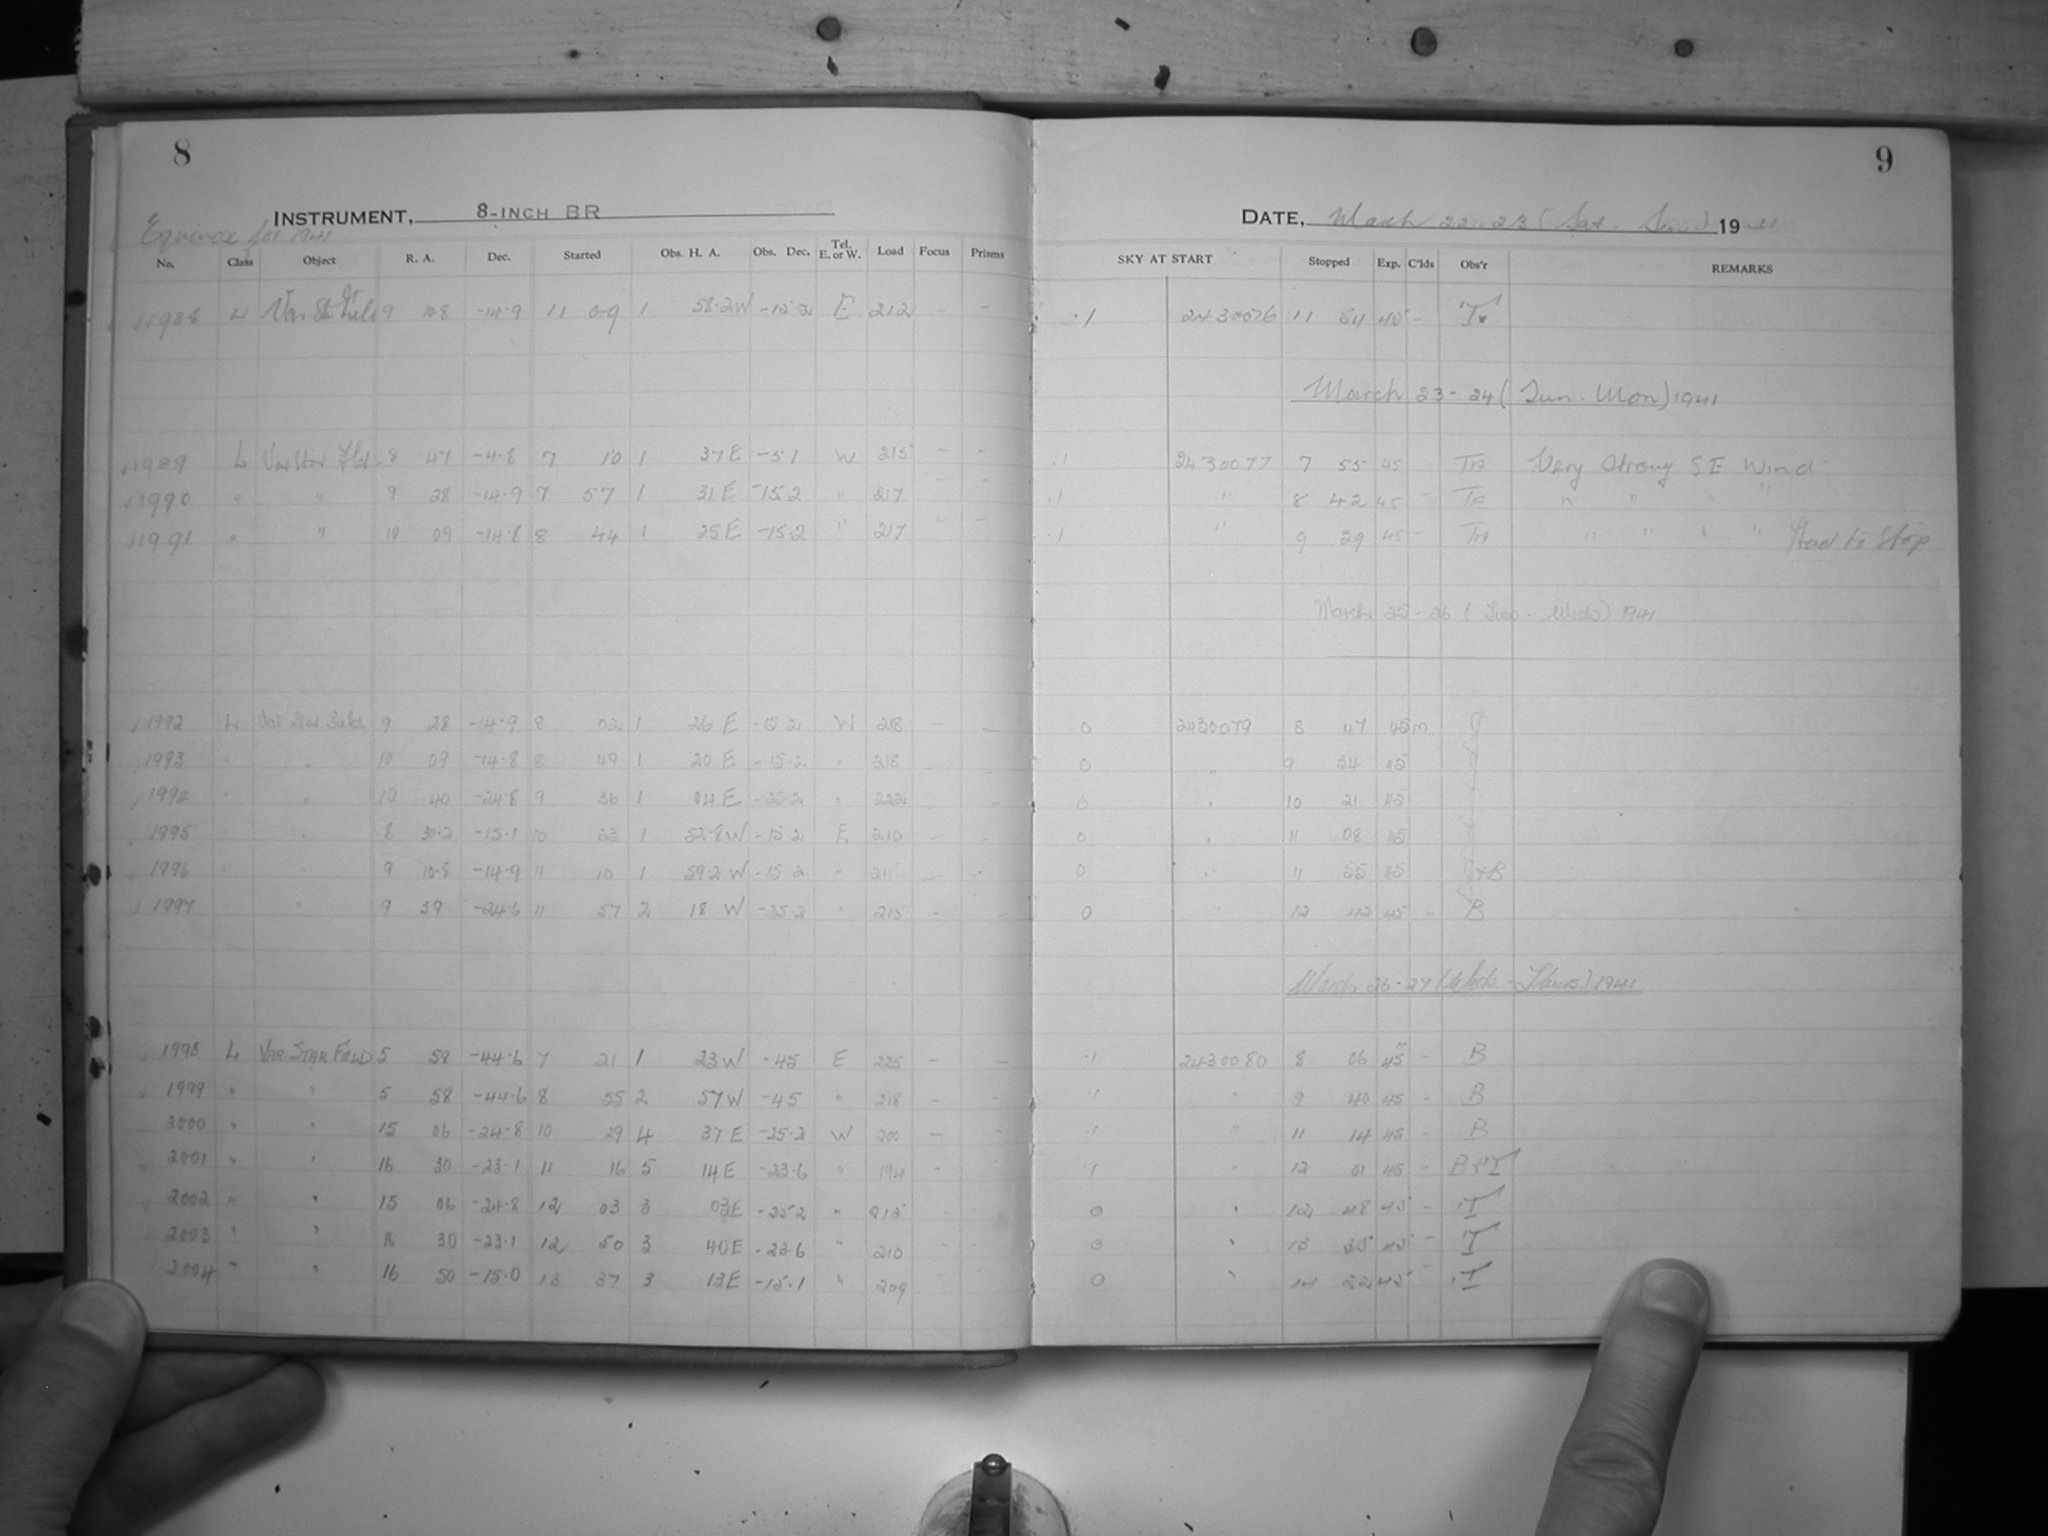 8
INSTRUMENT, 8-INCH BR
Equinox for 1941
No. Class Object R. A. Dec. Started Obs. H. A. Obs. Dec. Tel. E. or W. Load Focus Prisms
1988 L Var. St. 9 10.8 -14.9 11 09 1 58.2W -15.2 E 212 - -
1989 L Var Star Fld. 8 47 -4.8 7 10 1 37E -5.1 W 215 - -
1990 " " 9 28 -14.9 7 57 1 31E -15.2 " 217 - -
1991 " " 10 09 -14.8 8 44 1 25E -15.2 " 217 - -
1992 L Var Star 9 28 -14.9 8 02 1 26 E -15.2 W 218 - -
1993 " " 10 09 -14.8 8 49 1 20 E -15.2 " 218 -
1994 " " 10 40 -24.8 9 36 1 04E -25.2 " 222 -
1995 " " 8 30.2 -15.1 10 23 1 52.8W -15.2 E 210 - -
1996 9 10.8 -14.9 11 10 1 59.2W -15.2 " 211 - -
1997 " 9 39 -24.6 11 57 2 18 W -25.2 " 215 - -
1998 L VAR. STAR FIELD 5 58 -44.6 7 21 1 23W -45 E 225 - -
1999 " " 5 58 -44.6 8 55 2 57W -45 " 218 - -
2000 " " 15 06 -24.8 10 29 4 37E -25.2 W 200 - -
2001 " " 16 30 -23.1 11 16 5 14E -23.6 " 194 - -
2002 " " 15 06 -24.8 12 03 3 03E -25.2 " 215 - -
2003 " " 16 30 -23.1 12 50 3 40E -23.6 " 210 - -
2004 " " 16 50 -15.0 13 37 3 13E -15.1 " 209
9
DATE, March 22-23 (Sat. - Sun) 1941
SKY AT START Stopped Exp. C'lds Obs'r REMARKS
.1 2430076 11 54 45 - T.
March 23-24 (Sun. - Mon) 1941
.1 2430077 7 55 45 - Very Strong SE Wind.
.1 " 8 42 45 - " " " "
.1 " 9 29 45 - " " " " Had to Stop
March 25-26 (Tues. - Weds) 1941
0 2430079 8 47 45m
0 " 9 34 45
0 " 10 21 45
0 " 11 08 45
0 " 11 55 45 +B
0 " 12 42 45 - B
March 26-27 (Weds. - Thurs) 1941
.1 2430080 8 06 45m - B
.1 " 9 40 45 - B
.1 " 11 14 45 B
.1 " 12 01 45 - B+T
0 " 12 48 45 - T
0 " 13 35 45 - T
0 " 14 22 45 - T